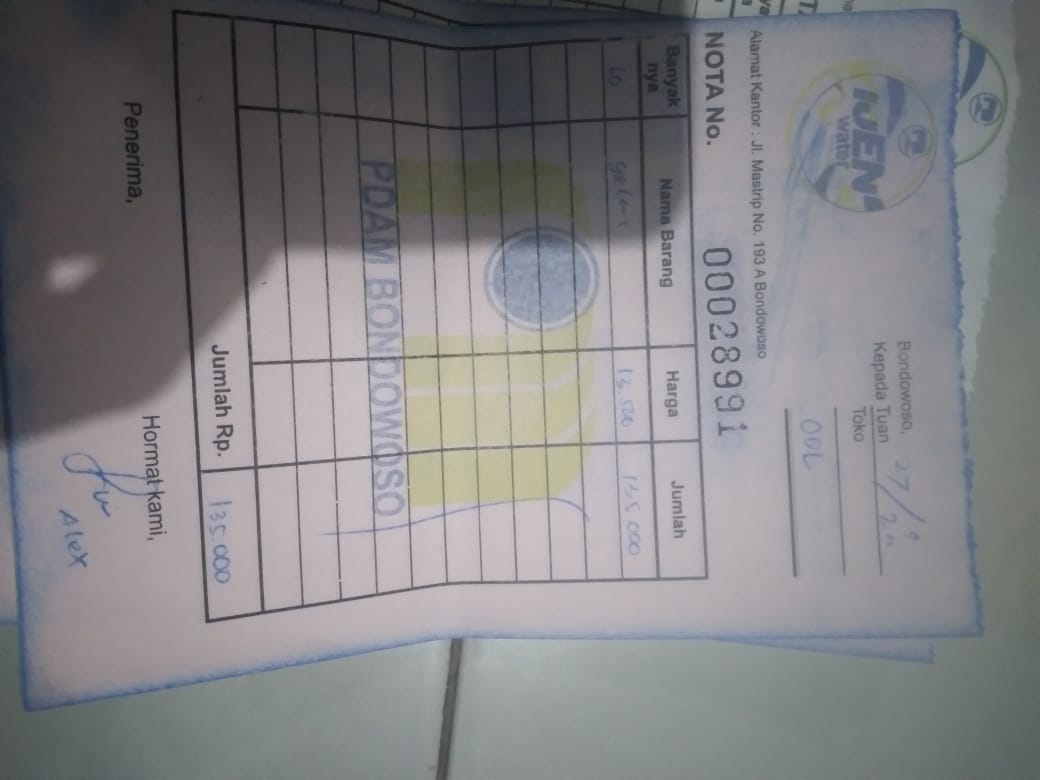 IJEN
water
Bondowoso, 27/9
Kepada Tuan
Toko
Alamat Kantor : Jl. Mastrip No. 193 A Bondowoso
NOTA No. 00028991
Banyak nya Nama Barang Harga Jumlah
10 13.500 135.000
PDAM BONDOWOSO
Jumlah Rp. 135.000
Penerima, Hormat kami,
Alex